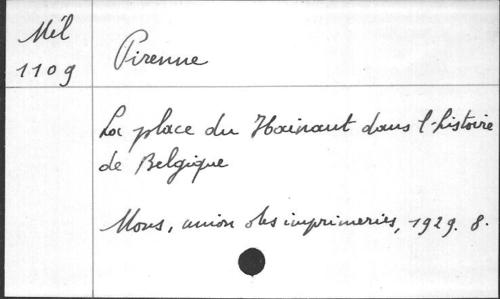 Mél
1109
Pirenne
La place du Hainaut dans l'histoire
de Belgique
Mons, union des imprimeries, 1929. 8.